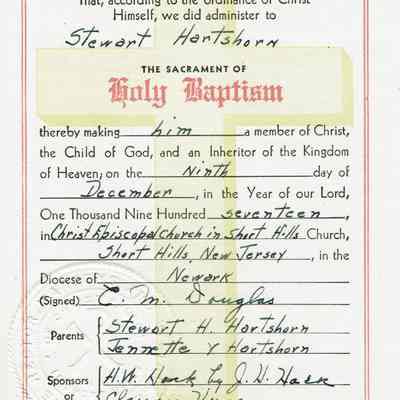 That, according to the ordinance of Christ
Himself, we did administer to
Stewart Hartshorn
THE SACRAMENT OF
Holy Baptism
thereby making him a member of Christ,
the Child of God, and an Inheritor of the Kingdom
of Heaven; on the Ninth day of
December, in the Year of our Lord,
One Thousand Nine Hundred seventeen,
in Christ Episcopal Church in Short Hills Church,
Short Hills, New Jersey, in the
Diocese of Newark
(Signed) C. M. Douglas
Parents Stewart H. Hartshorn
Jennette Y Hartshorn
Sponsors H.W. Hack by J. D. Hack
or